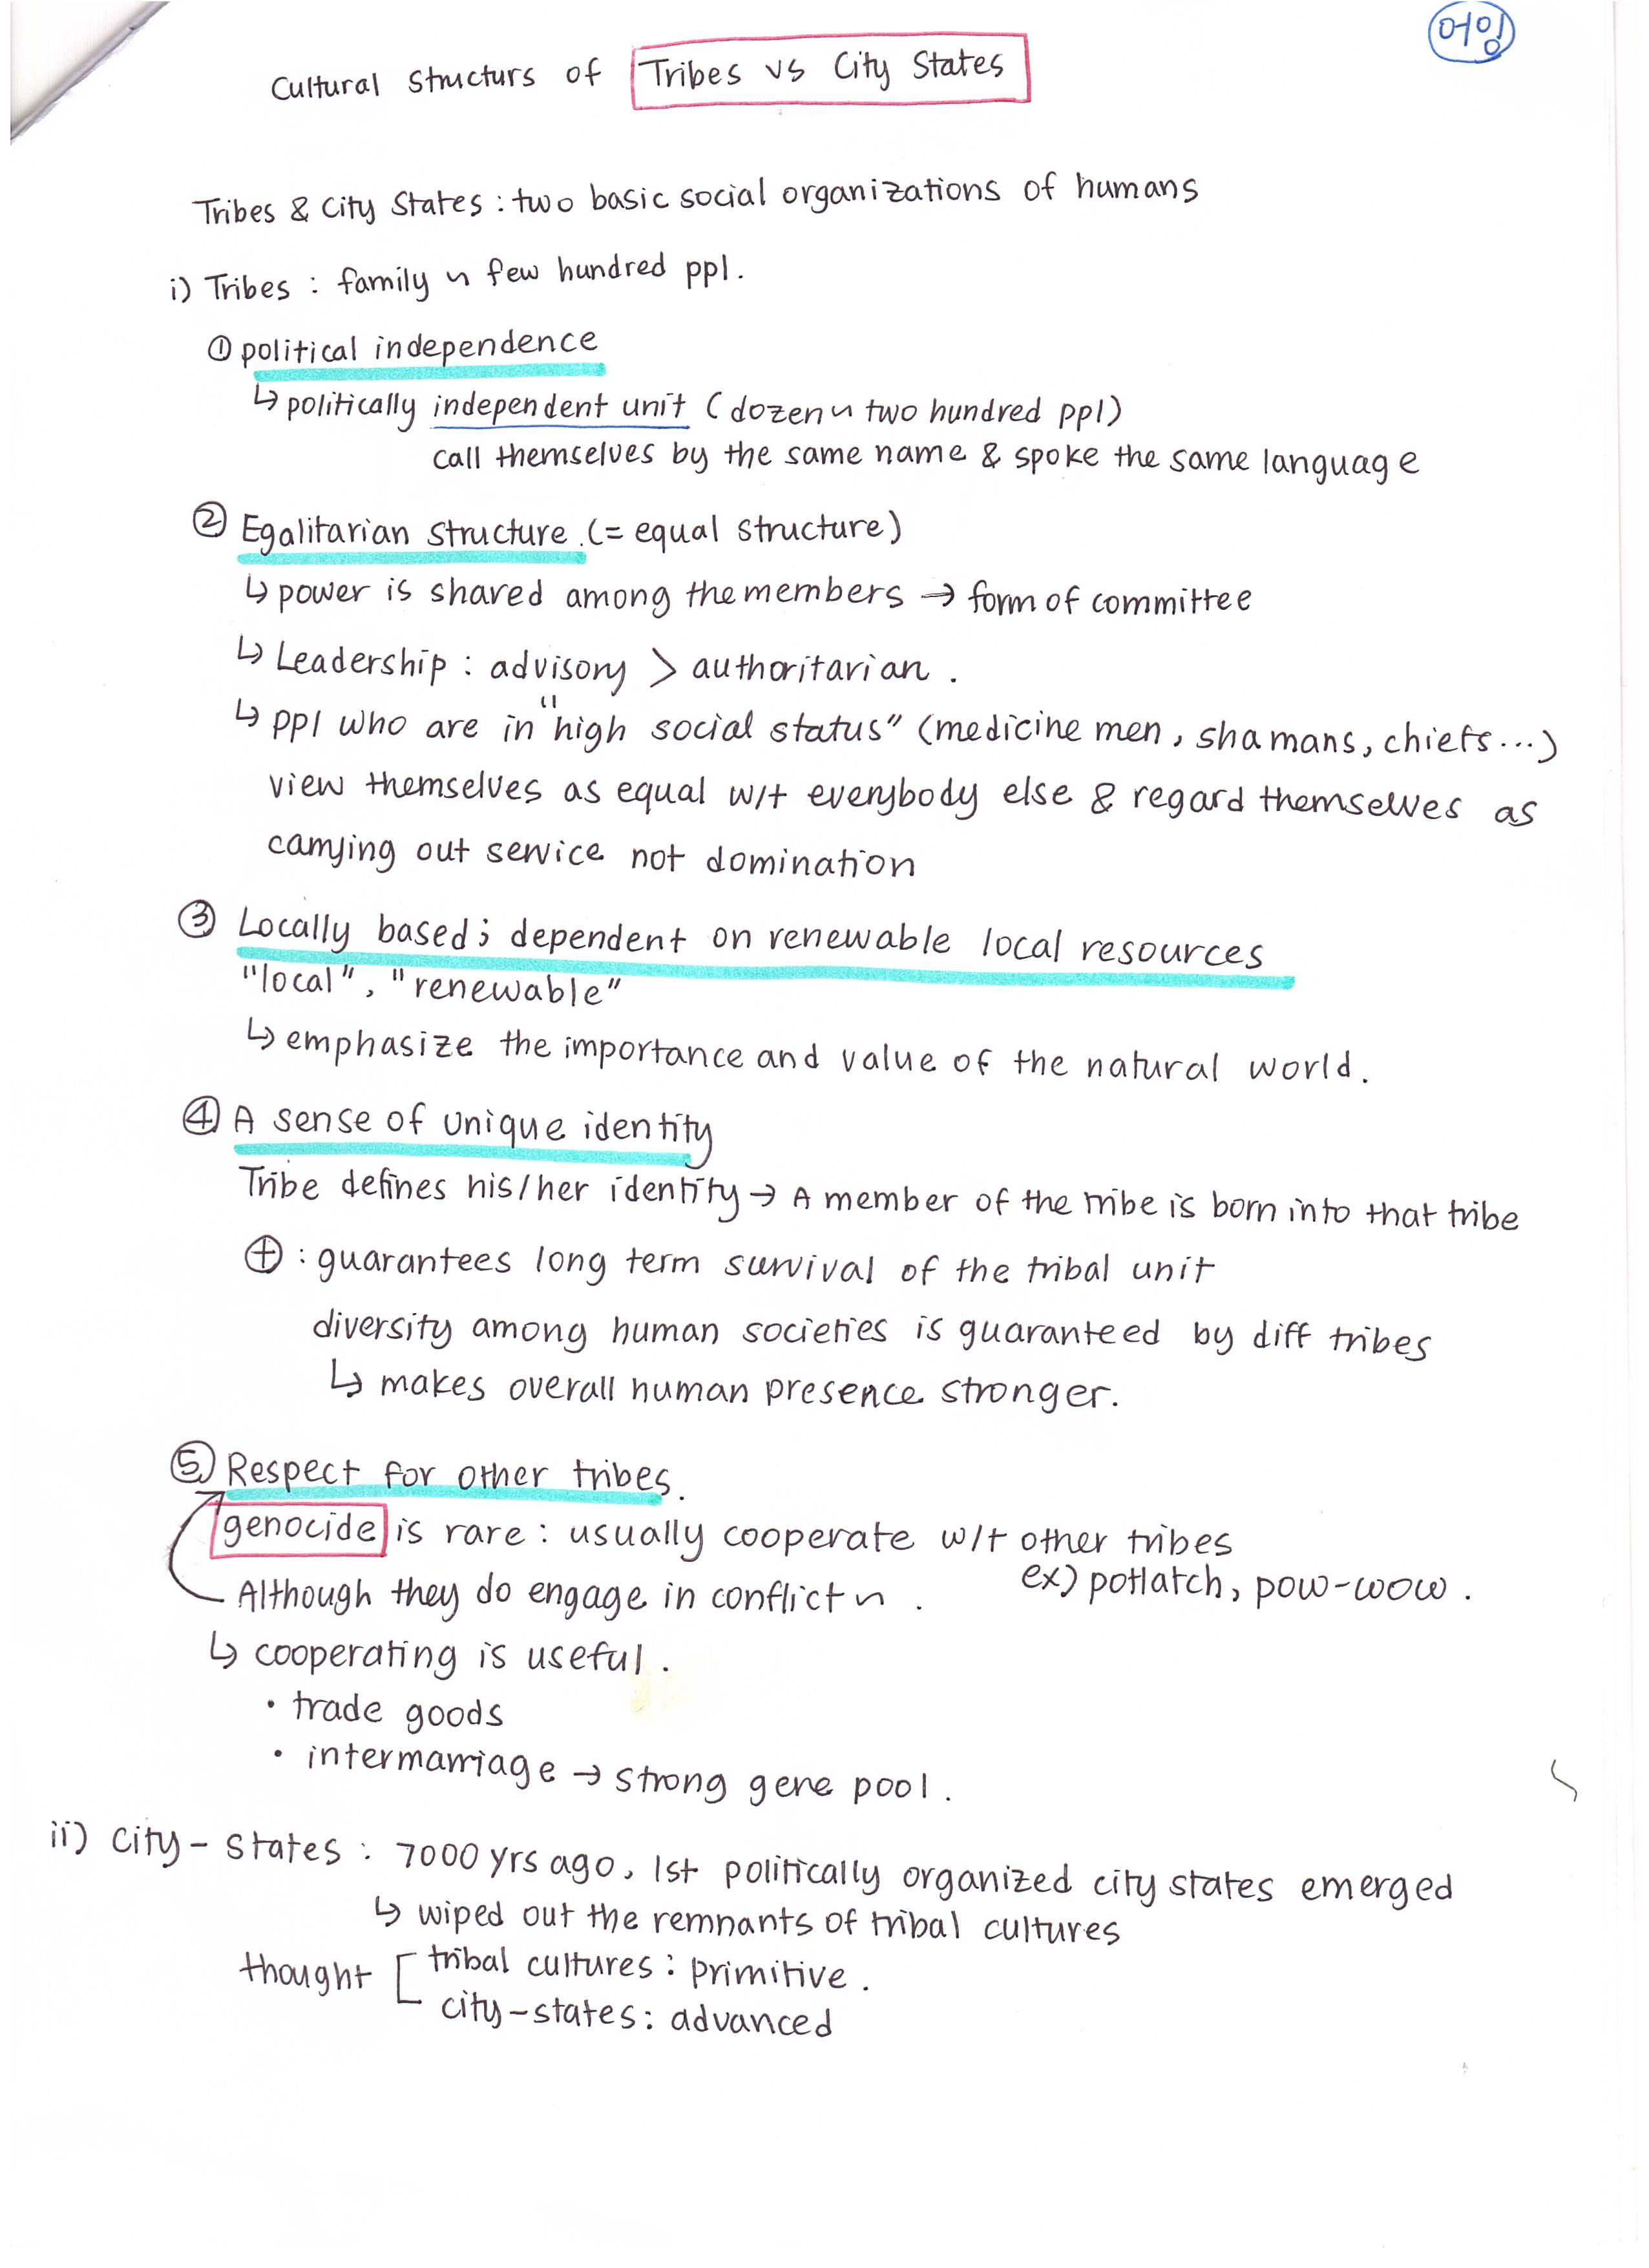 어잉
Cultural Structurs of Tribes vs City States
Tribes & City States : two basic social organizations of humans
i) Tribes : family ~ few hundred ppl.
① political independence
↳ politically independent unit (dozen ~ two hundred ppl)
call themselves by the same name & spoke the same language
② Egalitarian structure. (= equal structure)
↳ power is shared among the members → form of committee
↳ Leadership : advisory > authoritarian.
↳ ppl who are in "high social status" (medicine men, shamans, chiefs...)
view themselves as equal w/t everybody else & regard themselves as
carrying out service not domination
③ Locally based; dependent on renewable local resources
"local", "renewable"
↳ emphasize the importance and value of the natural world.
④ A sense of unique identity
Tribe defines his/her identity → A member of the tribe is born into that tribe
⊕ : guarantees long term survival of the tribal unit
diversity among human societies is guaranteed by diff tribes
↳ makes overall human presence stronger.
⑤ Respect for other tribes.
genocide is rare : usually cooperate w/t other tribes
ex) potlatch, pow-wow.
Although they do engage in conflict ~ .
↳ cooperating is useful.
• trade goods
• intermarriage → strong gene pool.
ii) city-states : 7000 yrs ago, 1st politically organized city states emerged
↳ wiped out the remnants of tribal cultures
thought [ tribal cultures : primitive.
city-states : advanced